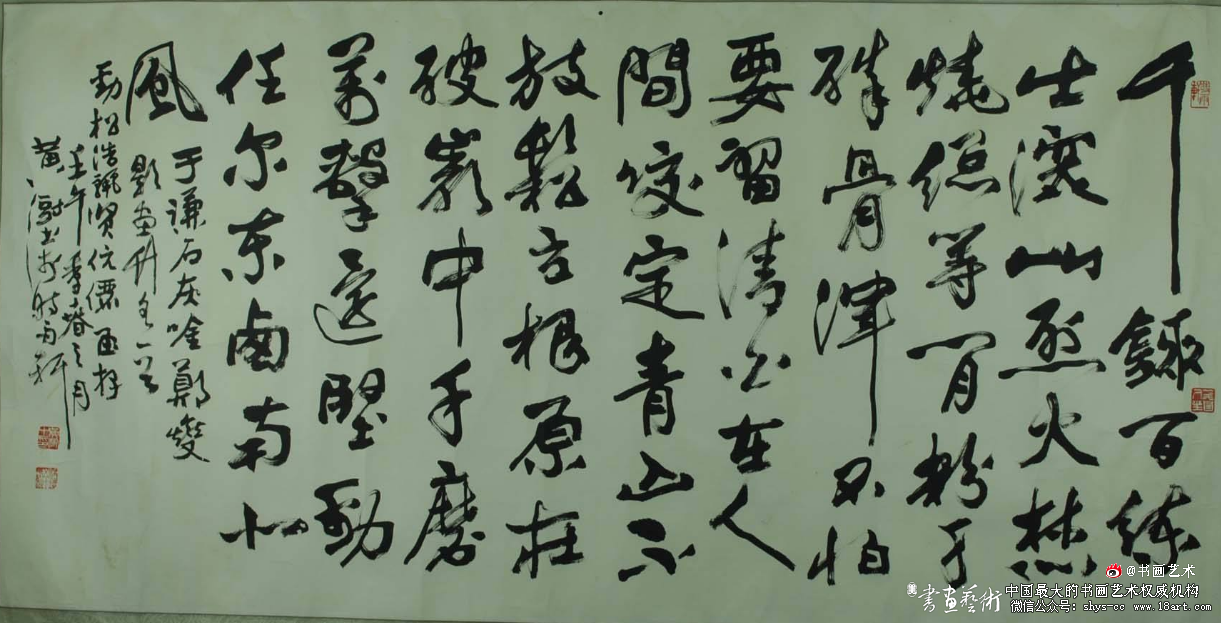 千鍊百練
出深山烈火焚
燒總等閒粉身
碎骨渾不怕
要留清白在人
間咬定青山不
放鬆立根原在
破巖中千磨
萬擊還堅勁
任尔东西南北
風 于謙石灰吟鄭燮
題画竹各一首
勁松浩 賢伉儷
壬午季春之月
黃澍书於時雨軒
@书画艺术
書畫藝術
中国最大的书画艺术权威机构
微信公众号：shys-cc www.18art.com